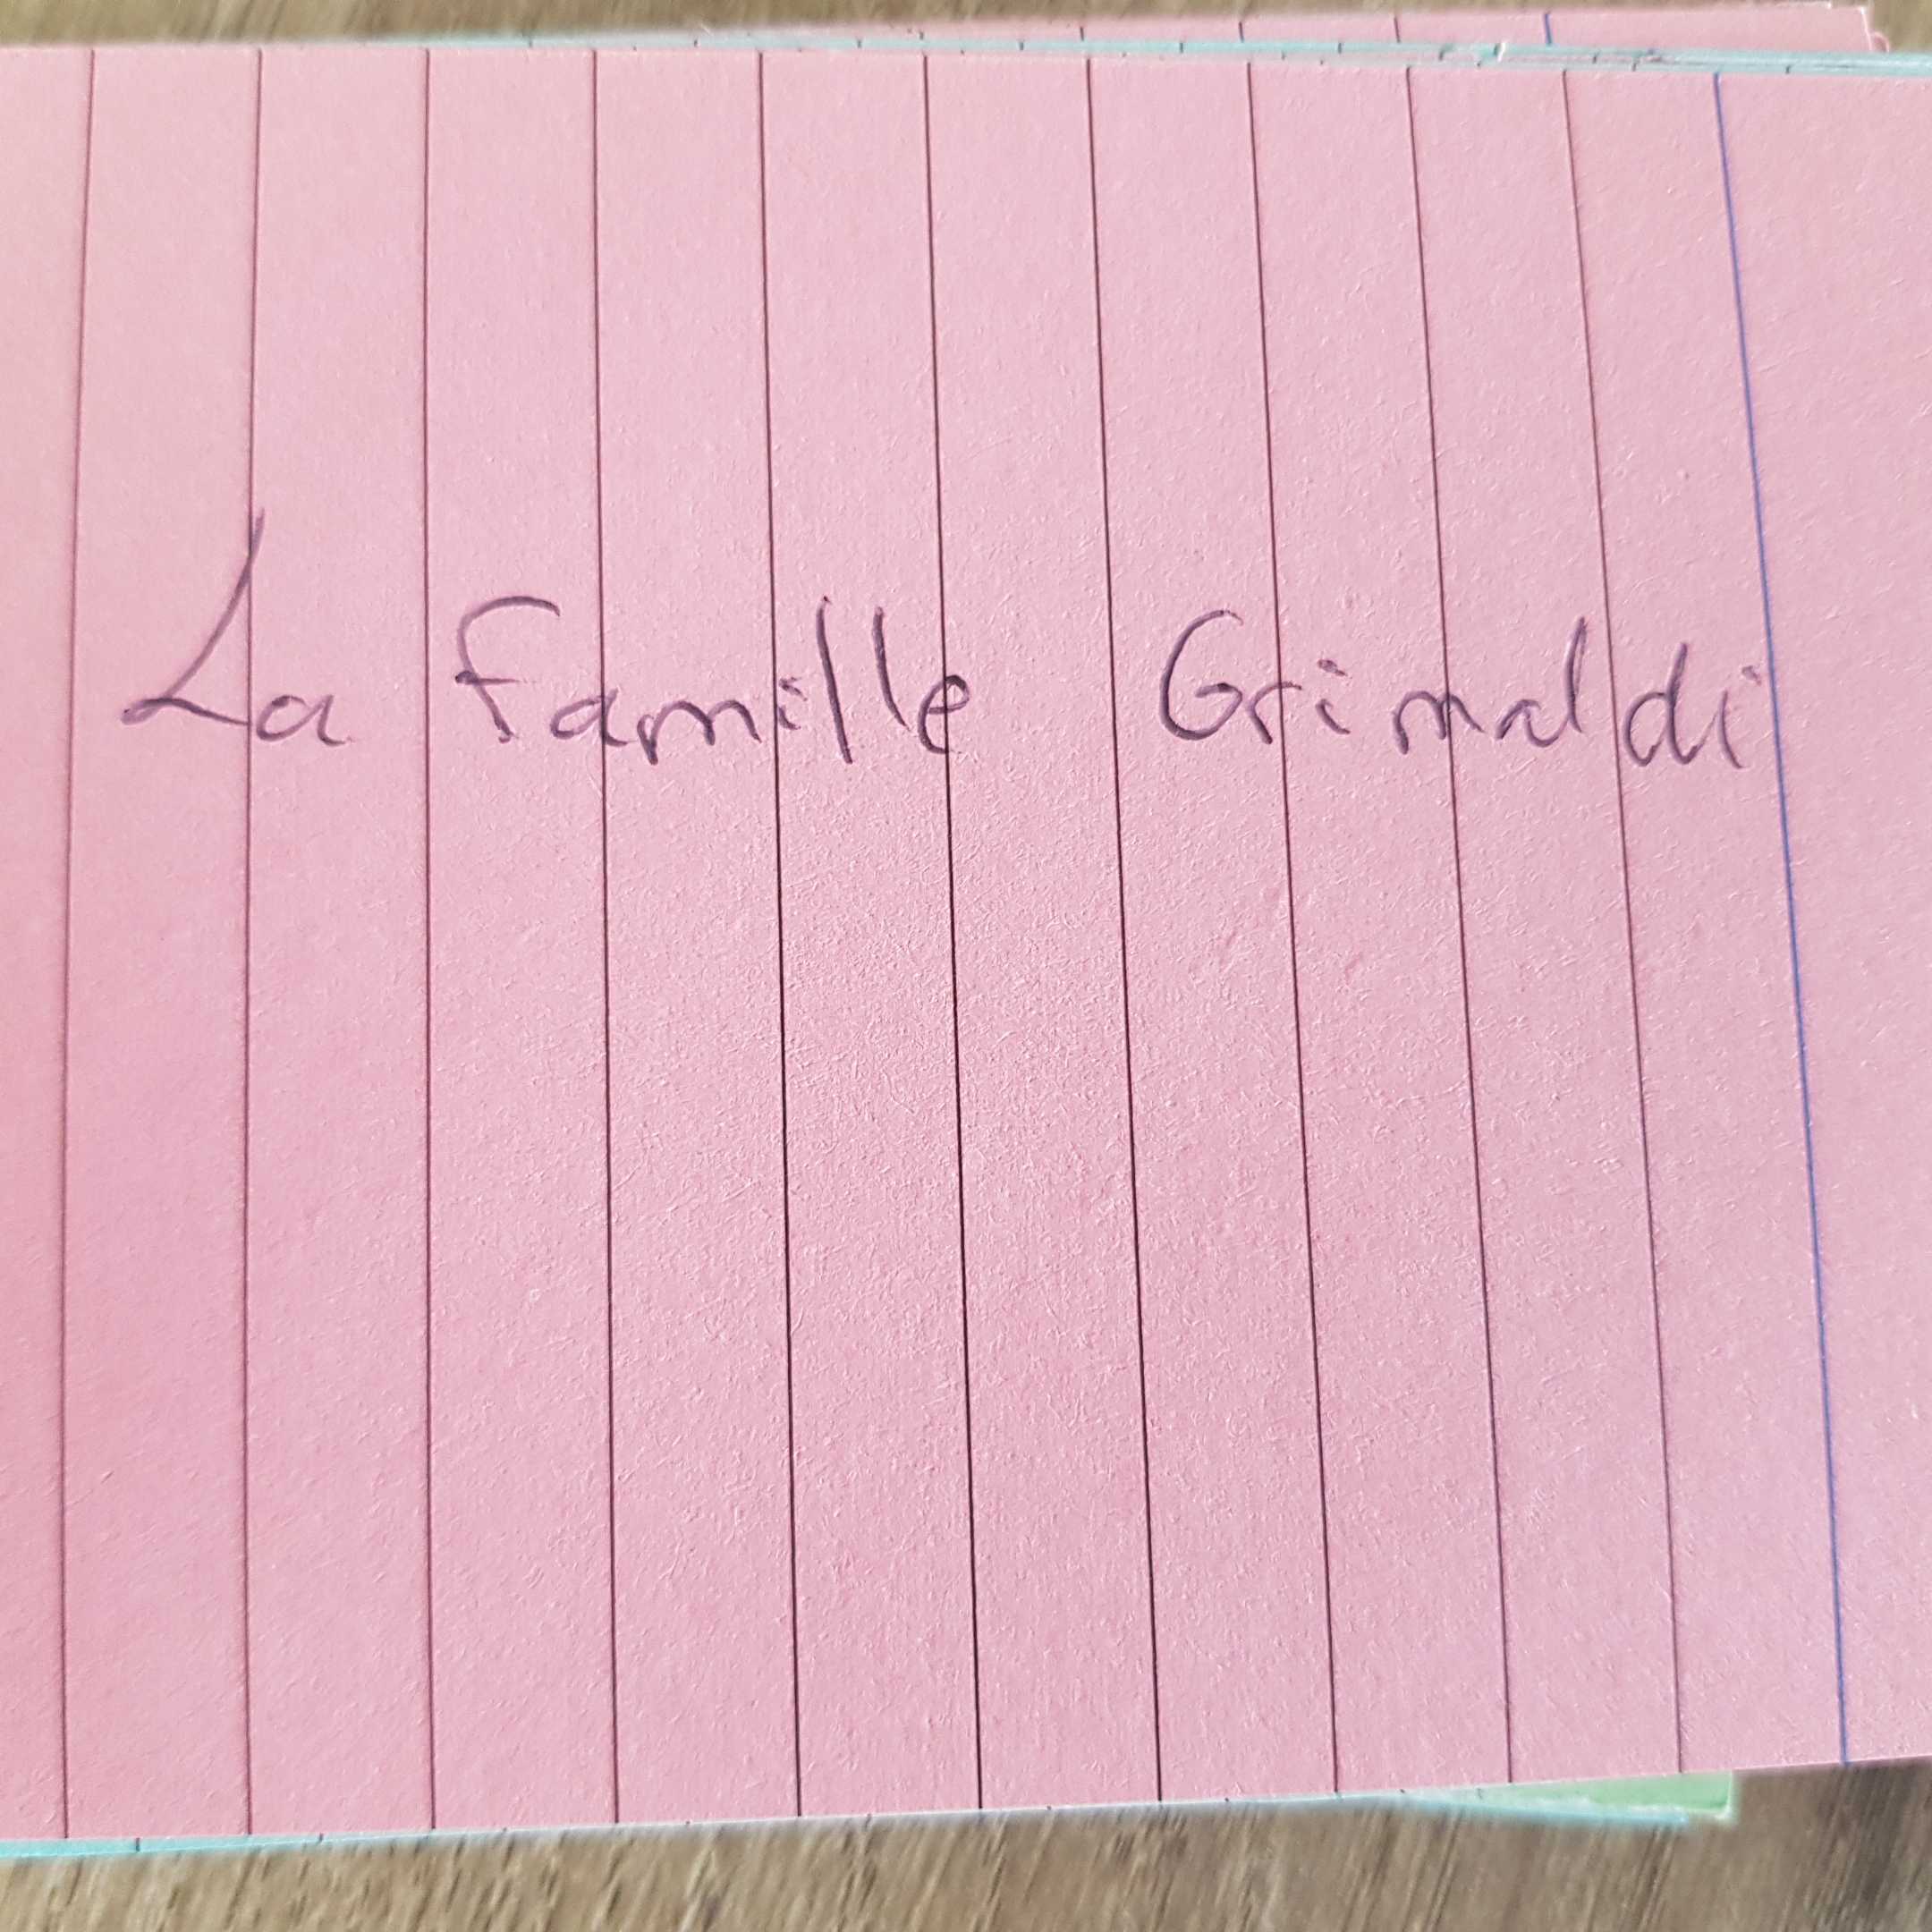 La famille Grimaldi